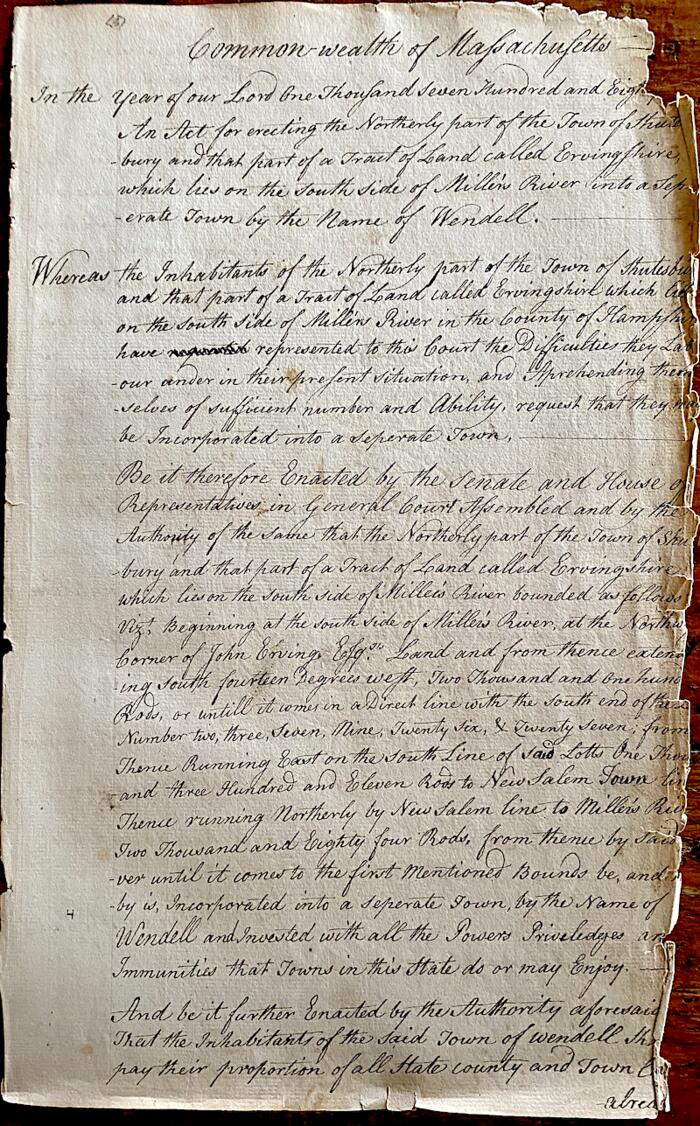 Common-wealth of Massachusetts
In the Year of our Lord One Thousand Seven Hundred and Eigh
An Act for erecting the Northerly part of the Town of Shut
-bury and that part of a Tract of Land called Ervingshire,
which lies on the South side of Millers River into a Sep
-erate Town by the Name of Wendell.
Whereas the Inhabitants of the Northerly part of the Town of Shutesbu
and that part of a Tract of Land called Ervingshire which
on the South side of Millers River in the County of Hampsh
have represented to this Court the Difficulties they Lab
-our under in their present Situation, and Apprehending them
-selves of sufficient number and Ability, request that they
be Incorporated into a seperate Town,
Be it therefore Enacted by the Senate and House o
Representatives in General Court Assembled and by the
Authority of the same that the Northerly part of the Town of Shu
-bury and that part of a Tract of Land called Ervingshire
which lies on the South side of Miller's River bounded as follows
Vizt. Beginning at the South side of Miller's River, at the North
Corner of John Erving Esqrs. Land and from thence exten
-ing South fourteen Degrees west, Two Thousand and one hund
Rods, or untill it comes in a Direct line with the South end of
Number two, three, Seven, Nine, Twenty six, & Twenty seven; from
Thence Running East on the South Line of said Lotts One Thou
and three Hundred and Eleven Rods to New Salem Town lin
Thence running Northerly by New Salem line to Miller's Riv
Two Thousand and Eighty four Rods, from thence by Said
-ver until it comes to the first Mentioned Bounds be, and
-by is, Incorporated into a seperate Town, by the Name of
Wendell and Invested with all the Powers Priveledges an
Immunities that Towns in this State do or may Enjoy.
And be it further Enacted by the Authority aforesaid
That the Inhabitants of the said Town of wendell Sh
pay their proportion of all State county and Town
alrea